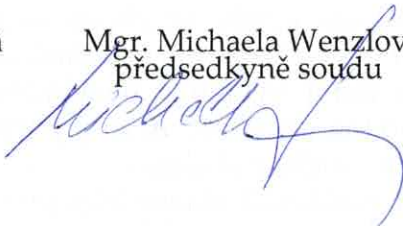 Mgr. Michaela Wenzlov
předsedkyně soudu